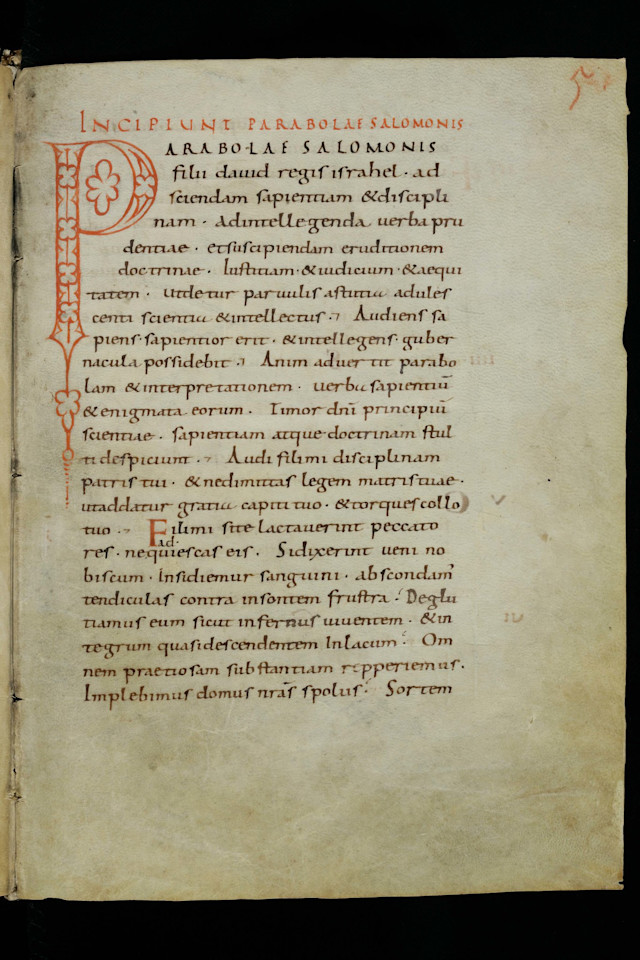 5
INCIPIUNT PARABOLAE SALOMONIS
PARABOLAE SALOMONIS
filii david regis israhel · ad
sciendam sapientiam & discipli
nam · Ad intellegenda verba pru
dentiae · et suscipiendam eruditionem
doctrinae · Iustitiam · & iudicium · & aequi
tatem · ut detur parvulis astutia adules
centi scientia & intellectus · Audiens sa
piens · sapientior erit · & intellegens · guber
nacula possidebit · Animadvertit parabo
lam & interpretationem · verba sapientiū
& enigmata eorum · Timor dn̄i principiū
scientiae · sapientiam atque doctrinam stul
ti despiciunt · Audi fili mi disciplinam
patris tui · & ne dimittas legem matris tuae ·
ut addatur gratia capiti tuo · & torques collo
tuo · Fili mi si te lactaverint peccato
ad ·
res · ne quiescas eis · Si dixerint veni no
biscum · Insidiemur sanguini · abscondam
tendiculas contra insontem frustra · Deglu
tiamus eum sicut infernus viventem · & in
tegrum quasi descendentem In lacum · Om
nem praetiosam substantiam repperiemus ·
Implebimus domus nr̄as spoliis · Sortem